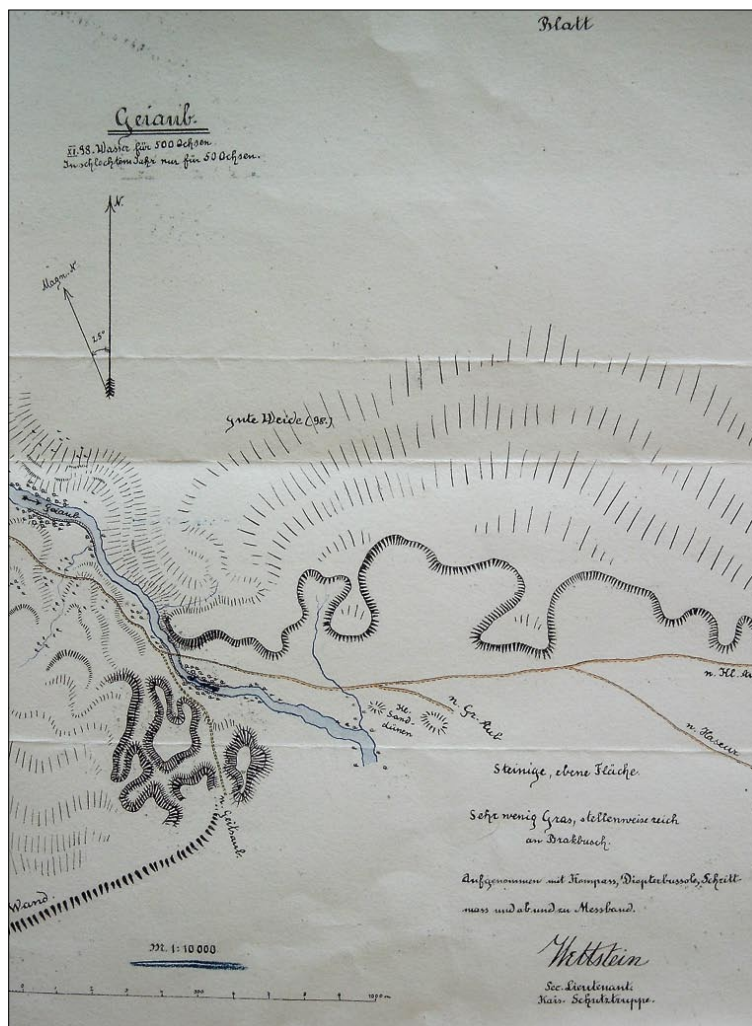 Blatt
Geiaub.
XI.98. Wasser für 500 Ochsen.
In schlechtem Jahr nur für 50 Ochsen.
N.
Magn. N.
25°
Gute Weide (98.)
Geiaub
n. Kl. Au
n. Gr. Aub
Kl.
Sand-
dünen
n. Haseur
Steinige, ebene Fläche.
Sehr wenig Gras, stellenweise reich
an Brakbusch.
n. Geitsaub.
Aufgenommen mit Kompass, Diopterbussole, Schritt
mass und ab und zu Messband.
Wand.
M. 1:10 000
Wettstein
Sec. Lieutenant.
Kais. Schutztruppe.
500
1000 m